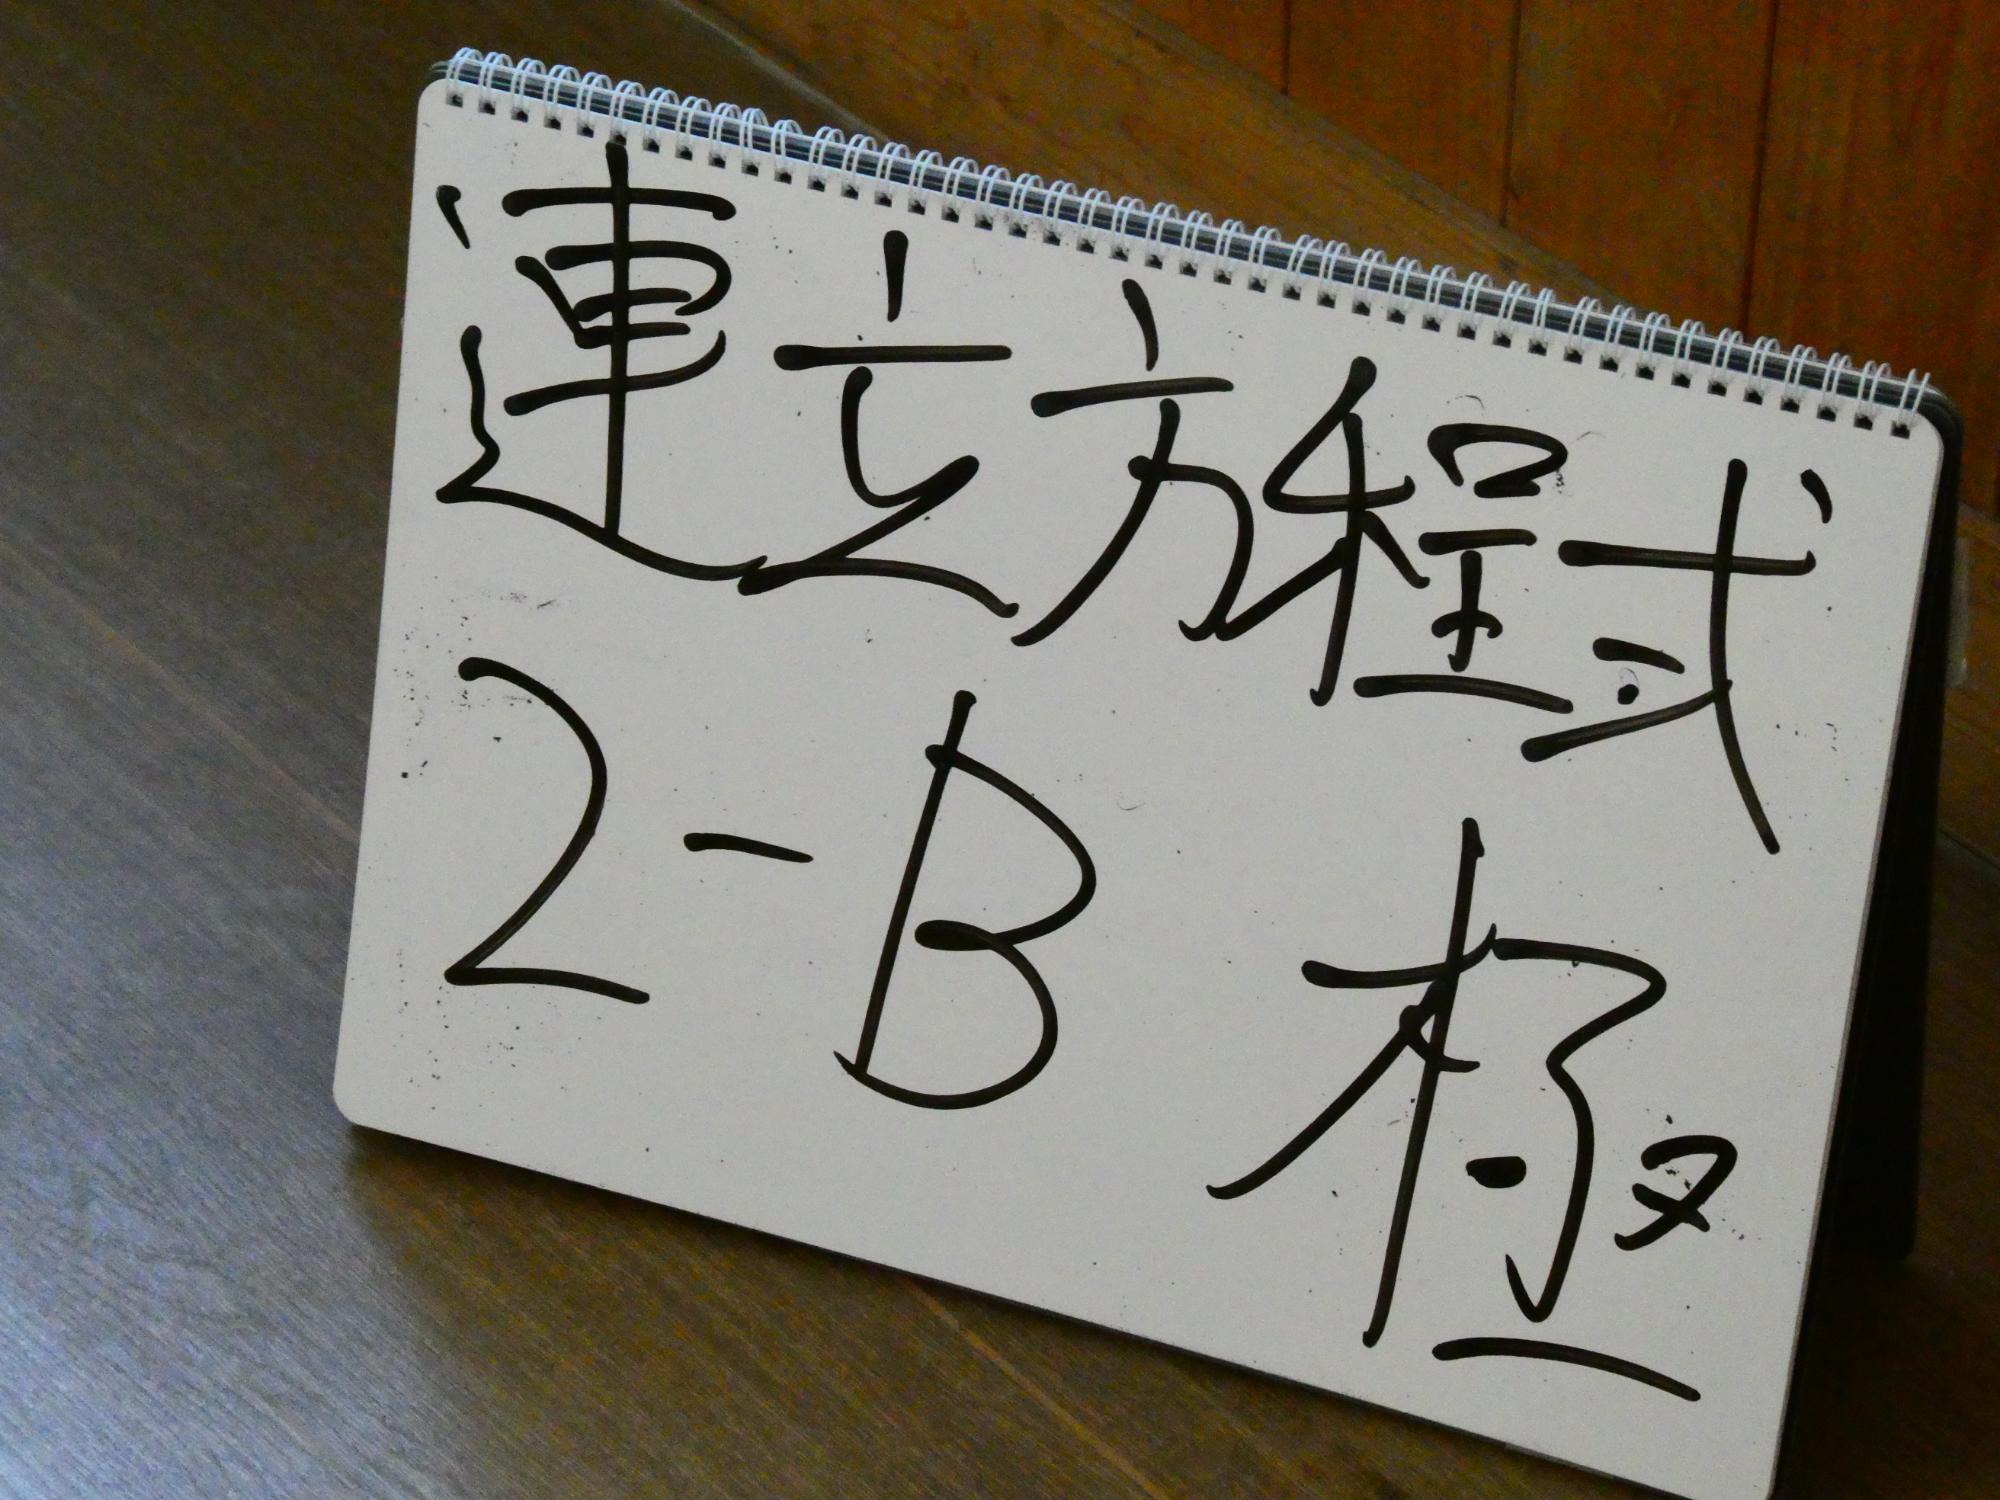 連立方程式
2-B 極